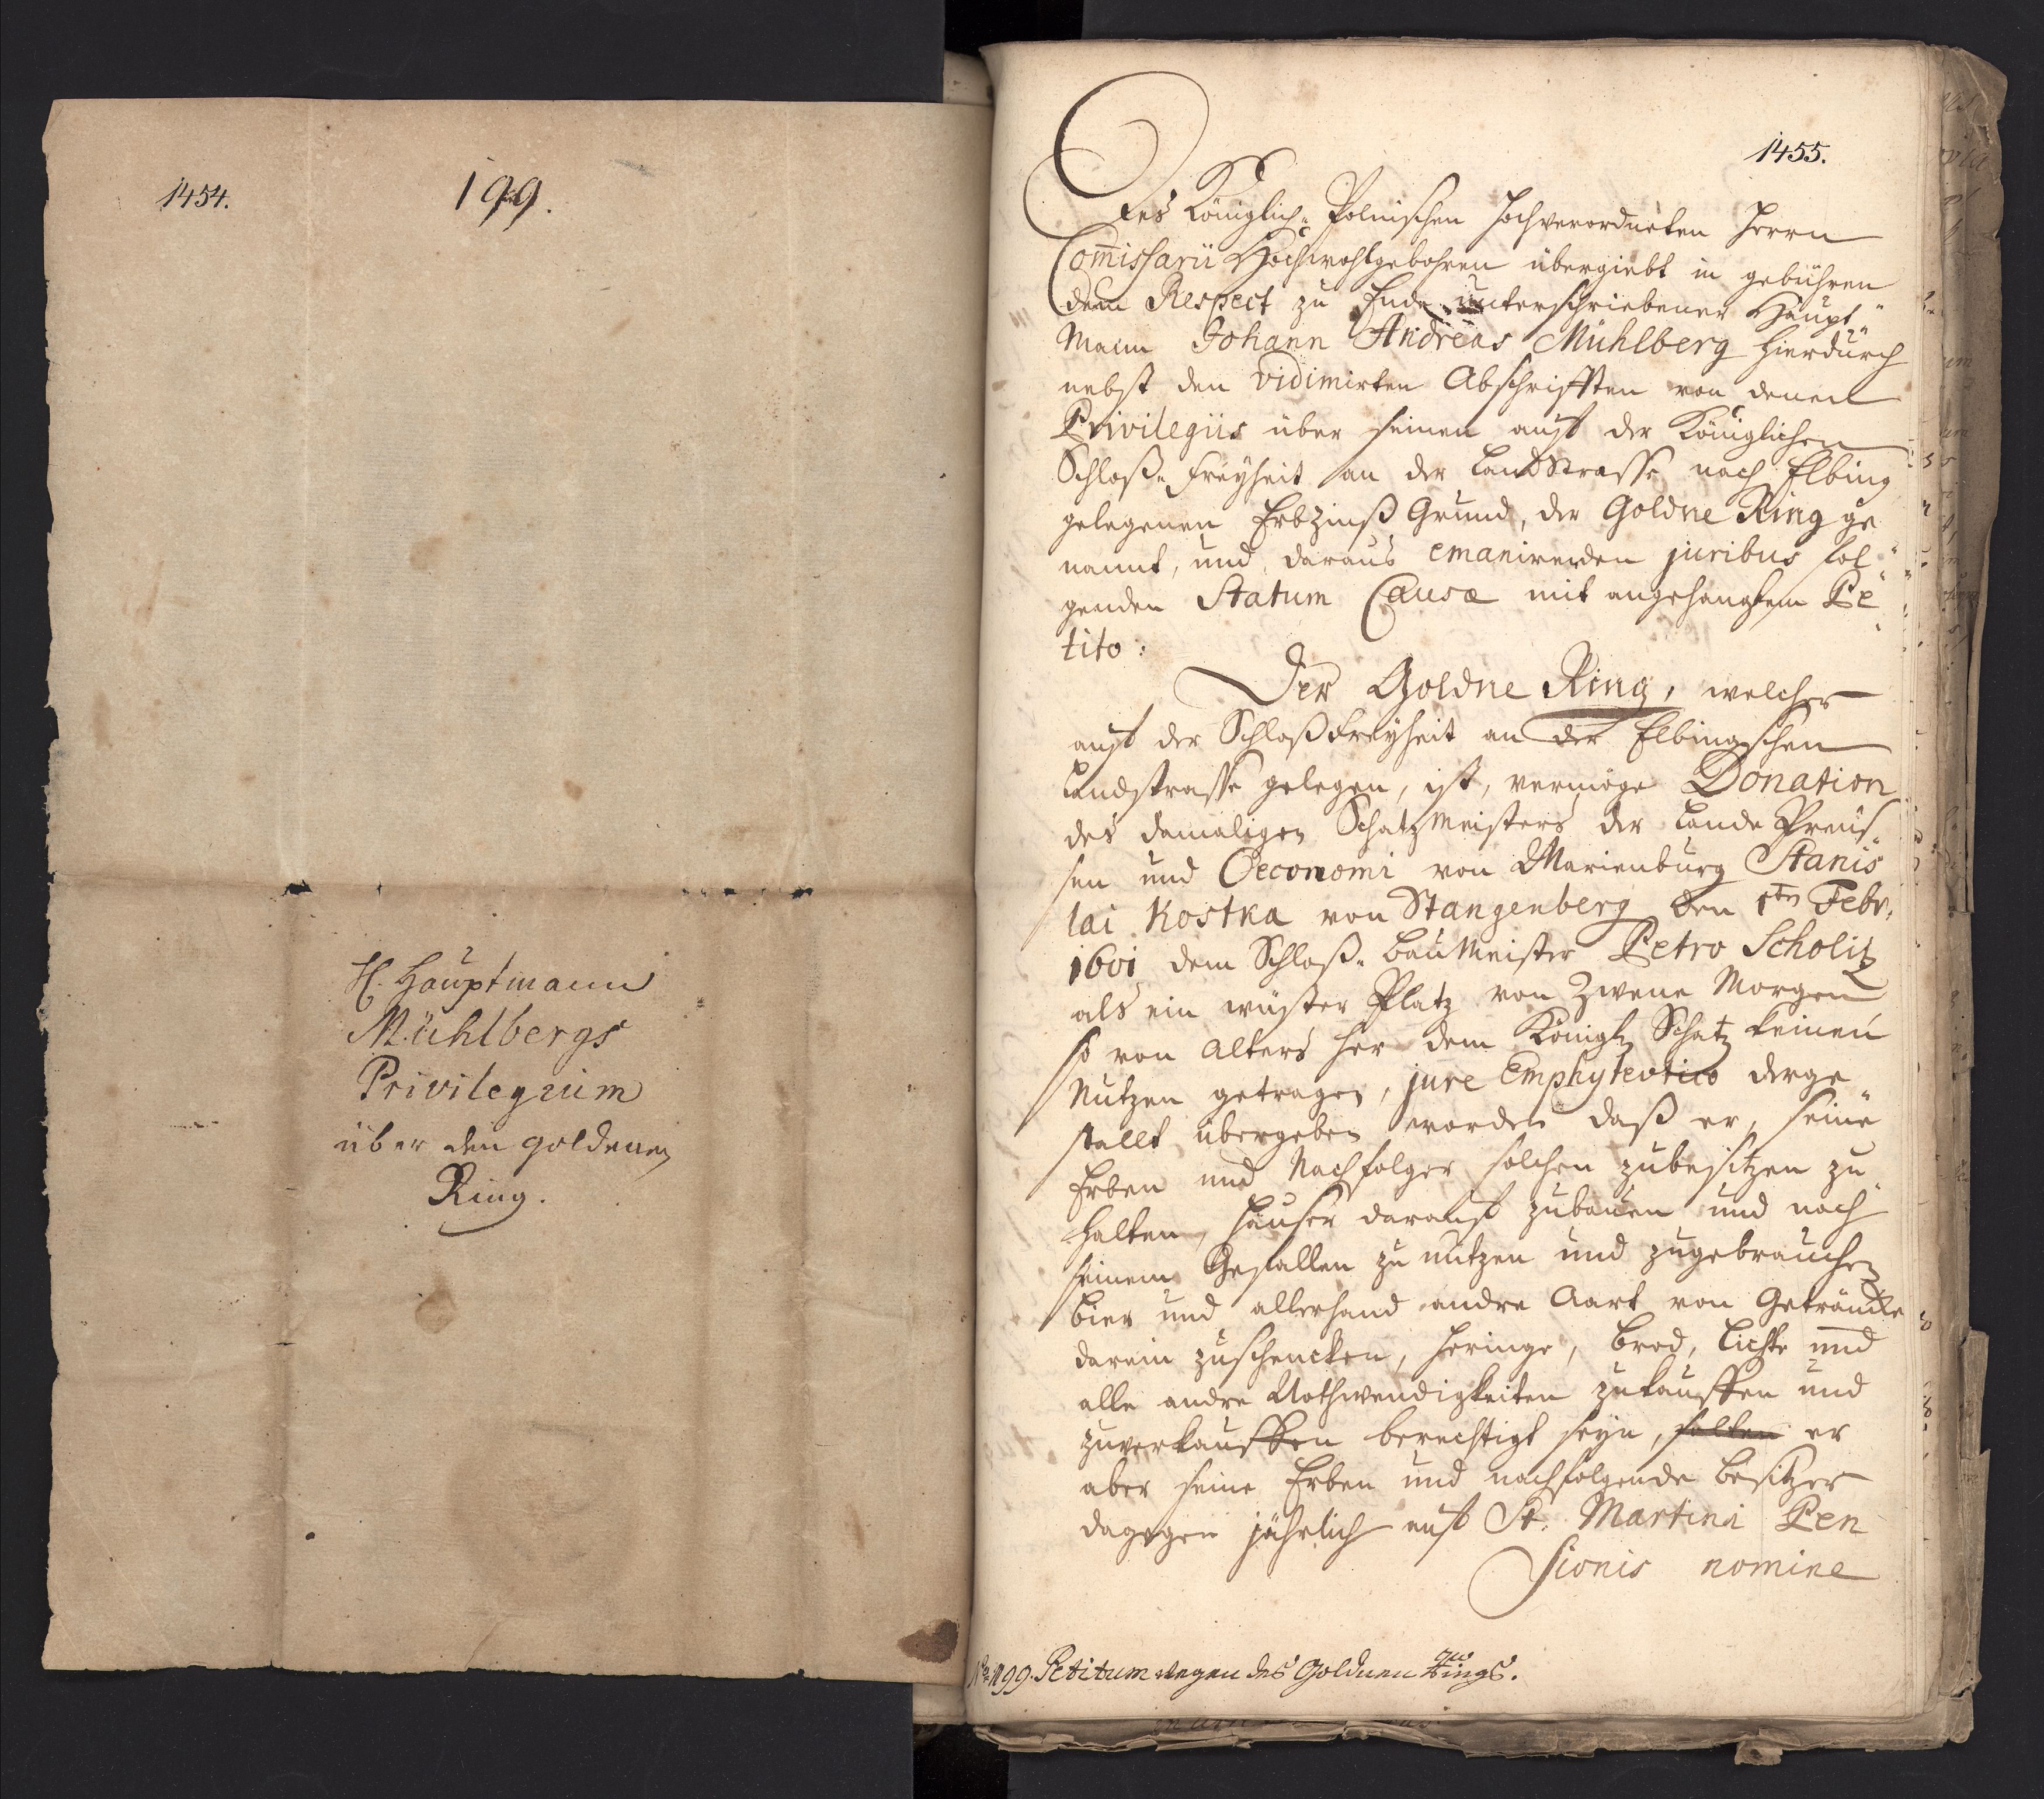 1454.
199.
H. Hauptmann
Mühlbergs
Privilegium
über den goldenen
Ring.
1455.
Des Königlich Polnischen Hochverordneten Herrn
Com̅issarii Hochwohlgebohren übergiebt in gebühren
dem Respect zu Ende unterschriebener Haupt„
Mann Johann Andreas Mühlberg hierdurch
nebst den vidimirten Abschrifften von denen
Privilegiis über seinen auff der Königlichen
Schloß„Freyheit an der LandStrasse nach Elbing
gelegenen Erbzinß Grund, der Goldne Ring ge„
nannt, und daraus emanirenden juribus fol„
genden Statum Causæ mit angehängtem Pe„
tito:
Der Goldne Ring, welcher
auff der Schloßfreyheit an der Elbingschen
Landstrasse gelegen, ist, vermöge Donation
des damaligen Schatzmeisters der Lande Preus„
sen und Oeconomi von Marienburg Stanis
lai Kostka von Stangenberg den 1ten Febr.
1601 dem Schloß„BauMeister Petro Scholtz
als ein wüster Platz von Zwene Morgen
so von Alters her dem Königl. Schatz keinen
Nutzen getragen, jure Emphytevtico derge„
stallt übergeben worden daß er, seine
Erben und Nachfolger solchen zubesitzen zu„
halten, Häuser darauff zubauen und nach
seinem Gefallen zu nutzen und zugebrauchen
Bier und allerhand andre Aart von Geträncke
darein zuschencken, Heringe, Brod, Lichte und
alle andre Nothwendigkeiten zukauffen und
zuverkauffen berechtigt seyn, solten er
aber seine Erben und nachfolgende Besitzer
dagegen jährlich auff St. Martini Pen
sionis nomine
No. 199. Petitum wegen des Goldnen Rings.